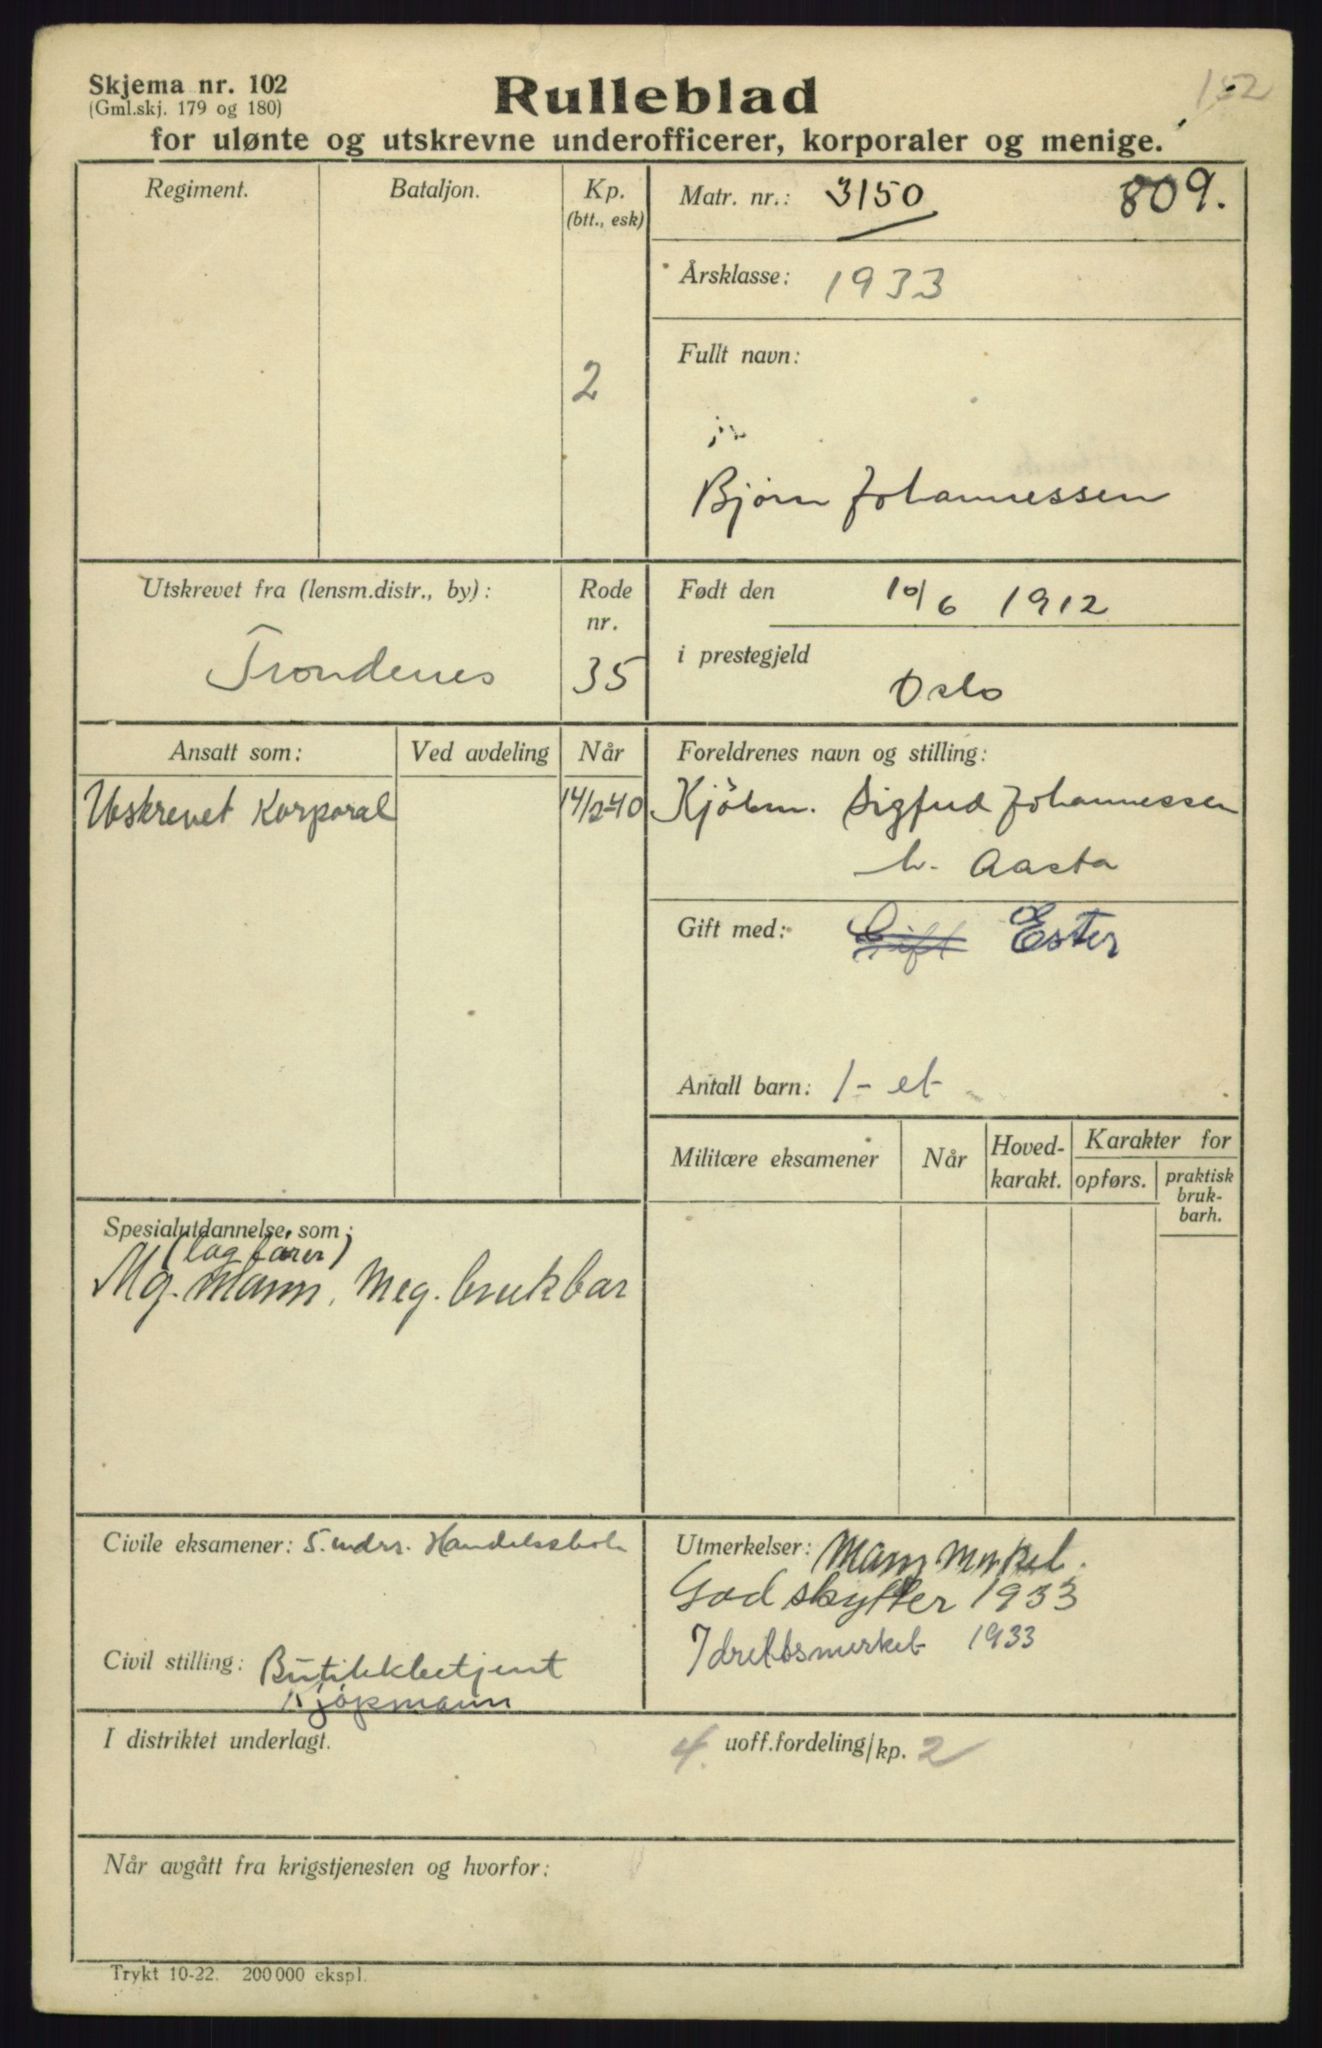 Skjema nr. 102
(Gml.skj. 179 og 180)
152
Rulleblad
for ulønte og utskrevne underofficerer, korporaler og menige.
Regiment.
Bataljon.
Kp.
(btt., esk)
2
Matr. nr.: 3150 809.
Årsklasse: 1933
Fullt navn:
Bjørn Johannessen
Utskrevet fra (lensm.distr., by):
Trondenes
Rode
nr.
35
Født den 10/6 1912
i prestegjeld
Oslo
Ansatt som:
Ved avdeling
Når
Utskrevet Korporal
14/2-40
Foreldrenes navn og stilling:
Kjøbm. Sigfud Johannessen
h. Aasta
Gift med: Gift Ester
Antall barn: 1 - et
Militære eksamener
Når
Hoved-
karakt.
Karakter for
opførs.
praktisk
bruk-
barh.
Spesialutdannelse som:
(lagfører)
Mg. mann, Meg. brukbar
Civile eksamener: 5. mdrs. Handelsskole
Civil stilling: Butikkbetjent
Kjøpmann
Utmerkelser:
God skytter 1933
Idrettsmerket 1933
I distriktet underlagt.
4. uoff.fordeling/kp. 2
Når avgått fra krigstjenesten og hvorfor:
Trykt 10-22. 200 000 ekspl.